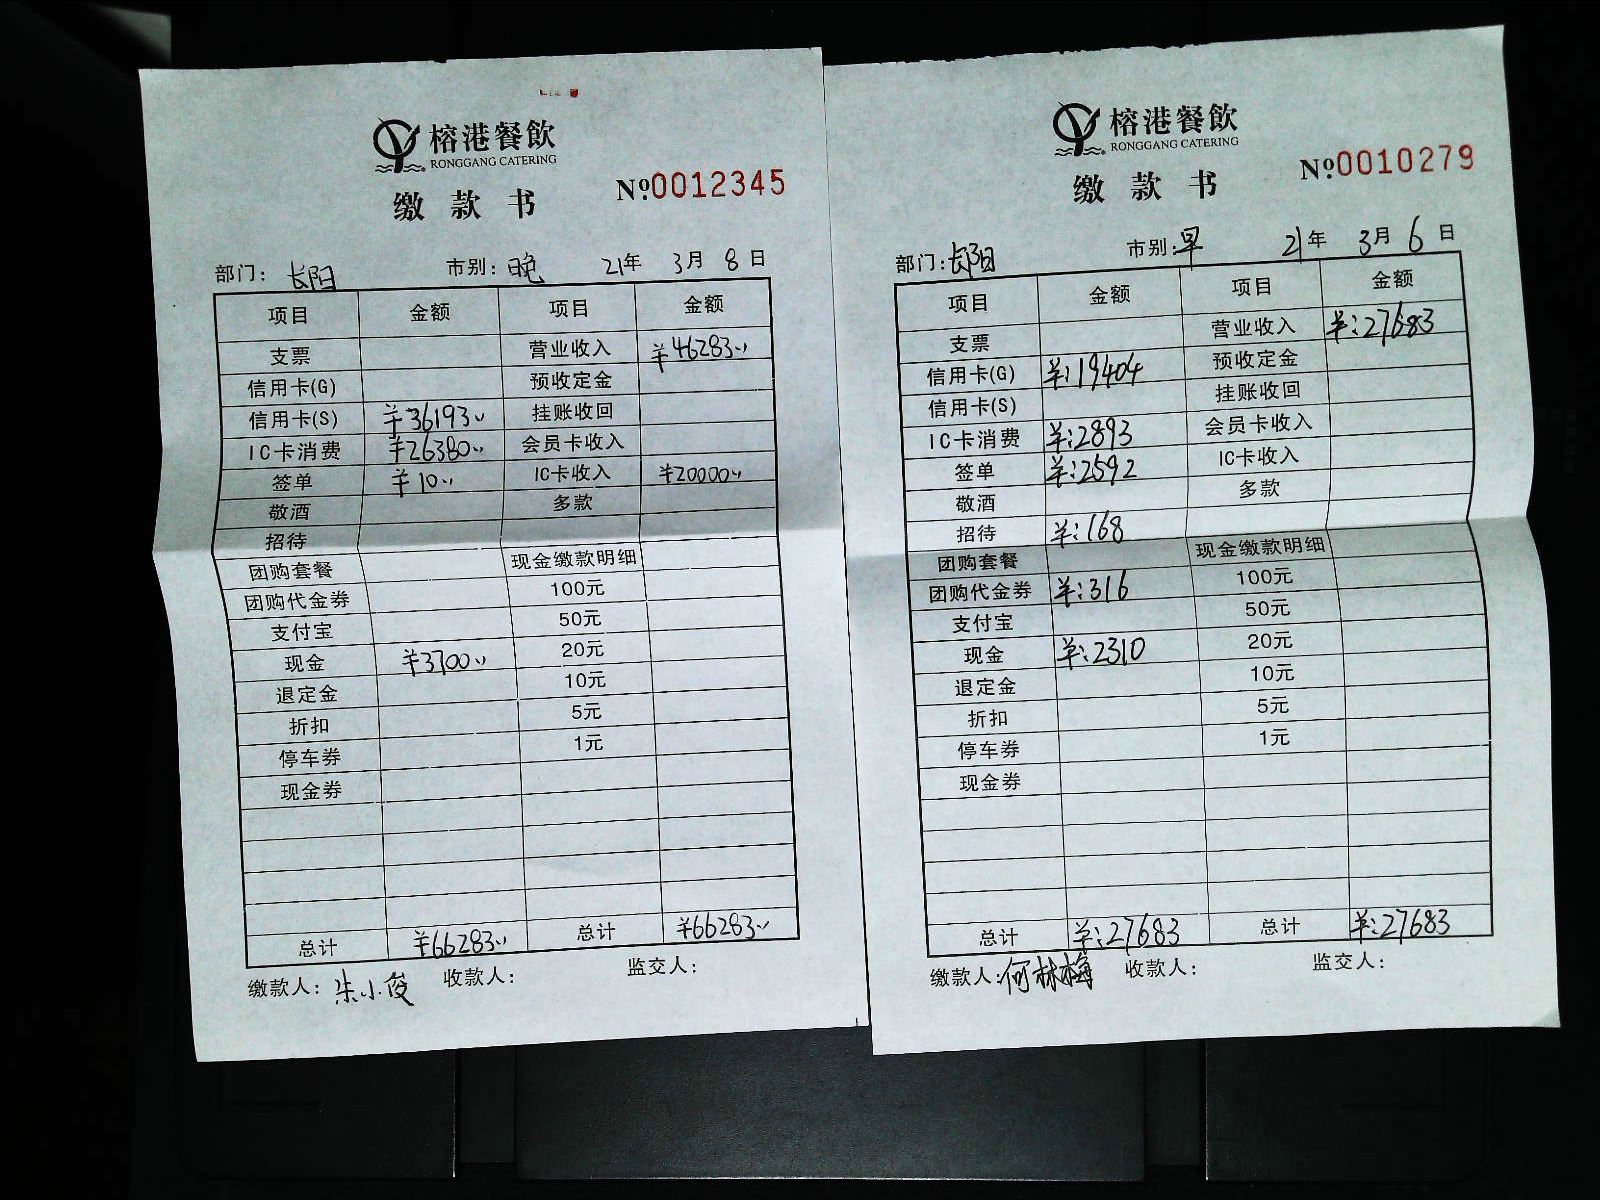 榕港餐飲
RONGGANG CATERING
缴款书
№0012345
部门: 长阳 市别: 晚 21年 3月 8日
项目 金额 项目 金额
支票 营业收入 ¥46283
信用卡(G) 预收定金
信用卡(S) ¥36193 挂账收回
IC卡消费 ¥26380 会员卡收入
签单 ¥10 IC卡收入 ¥20000
敬酒 多款
招待
团购套餐 现金缴款明细
团购代金券 100元
支付宝 50元
现金 ¥3700 20元
退定金 10元
折扣 5元
停车券 1元
现金券
总计 ¥66283 总计 ¥66283
缴款人: 朱小俊 收款人: 监交人:
榕港餐飲
RONGGANG CATERING
缴款书
№0010279
部门: 长阳 市别: 早 21年 3月 6日
项目 金额 项目 金额
支票 营业收入 ¥:27683
信用卡(G) ¥:19404 预收定金
信用卡(S) 挂账收回
IC卡消费 ¥:2893 会员卡收入
签单 ¥:2592 IC卡收入
敬酒 多款
招待 ¥:168
团购套餐 现金缴款明细
团购代金券 ¥:316 100元
支付宝 50元
现金 ¥:2310 20元
退定金 10元
折扣 5元
停车券 1元
现金券
总计 ¥:27683 总计 ¥:27683
缴款人: 何林梅 收款人: 监交人: